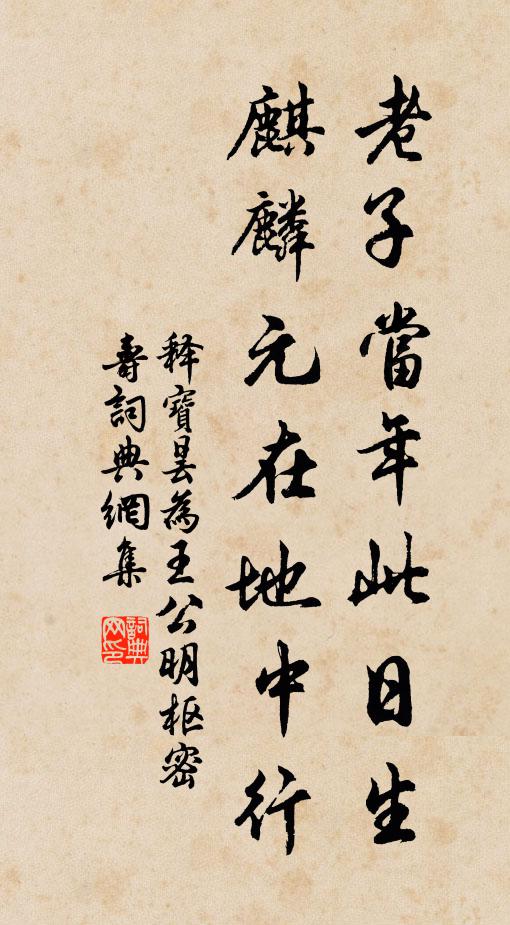 老子當年此日生
麒麟元在地中行
釋寶曇為王公明枢密
壽詞典網集
詞典網印